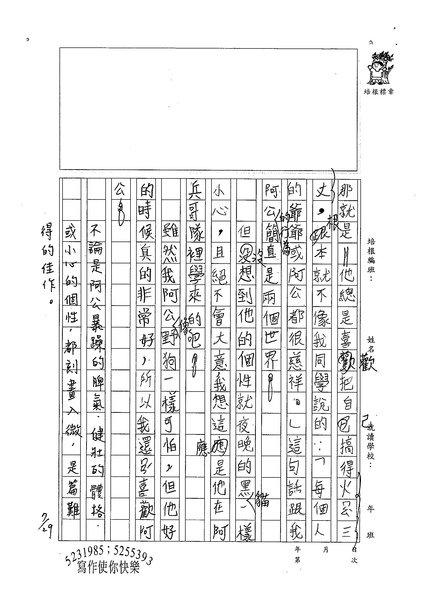 培根標章
培根編班：
姓名：
就讀學校：
年 班
年 月 日
第 次
那就是！他總是喜歡把自己搞得火冒三
丈，根本就不像我同學說的：「每個人
的爺爺或阿公都很慈祥。」這句話跟我
阿公的行為簡直是兩個世界！
但沒想到他的個性就夜晚的黑貓一樣
小心，且絕不會大意我想這應是他在阿
兵哥隊裡學來的吧！
雖然我阿公像野狗一樣可怕，但他好
的時候真的非常好，所以我還是喜歡阿
公！
不論是阿公暴躁的脾氣、健壯的體格、
或小心的個性，都刻畫入微，是篇難
得的佳作。
7/29
5231985；5255393
寫作使你快樂